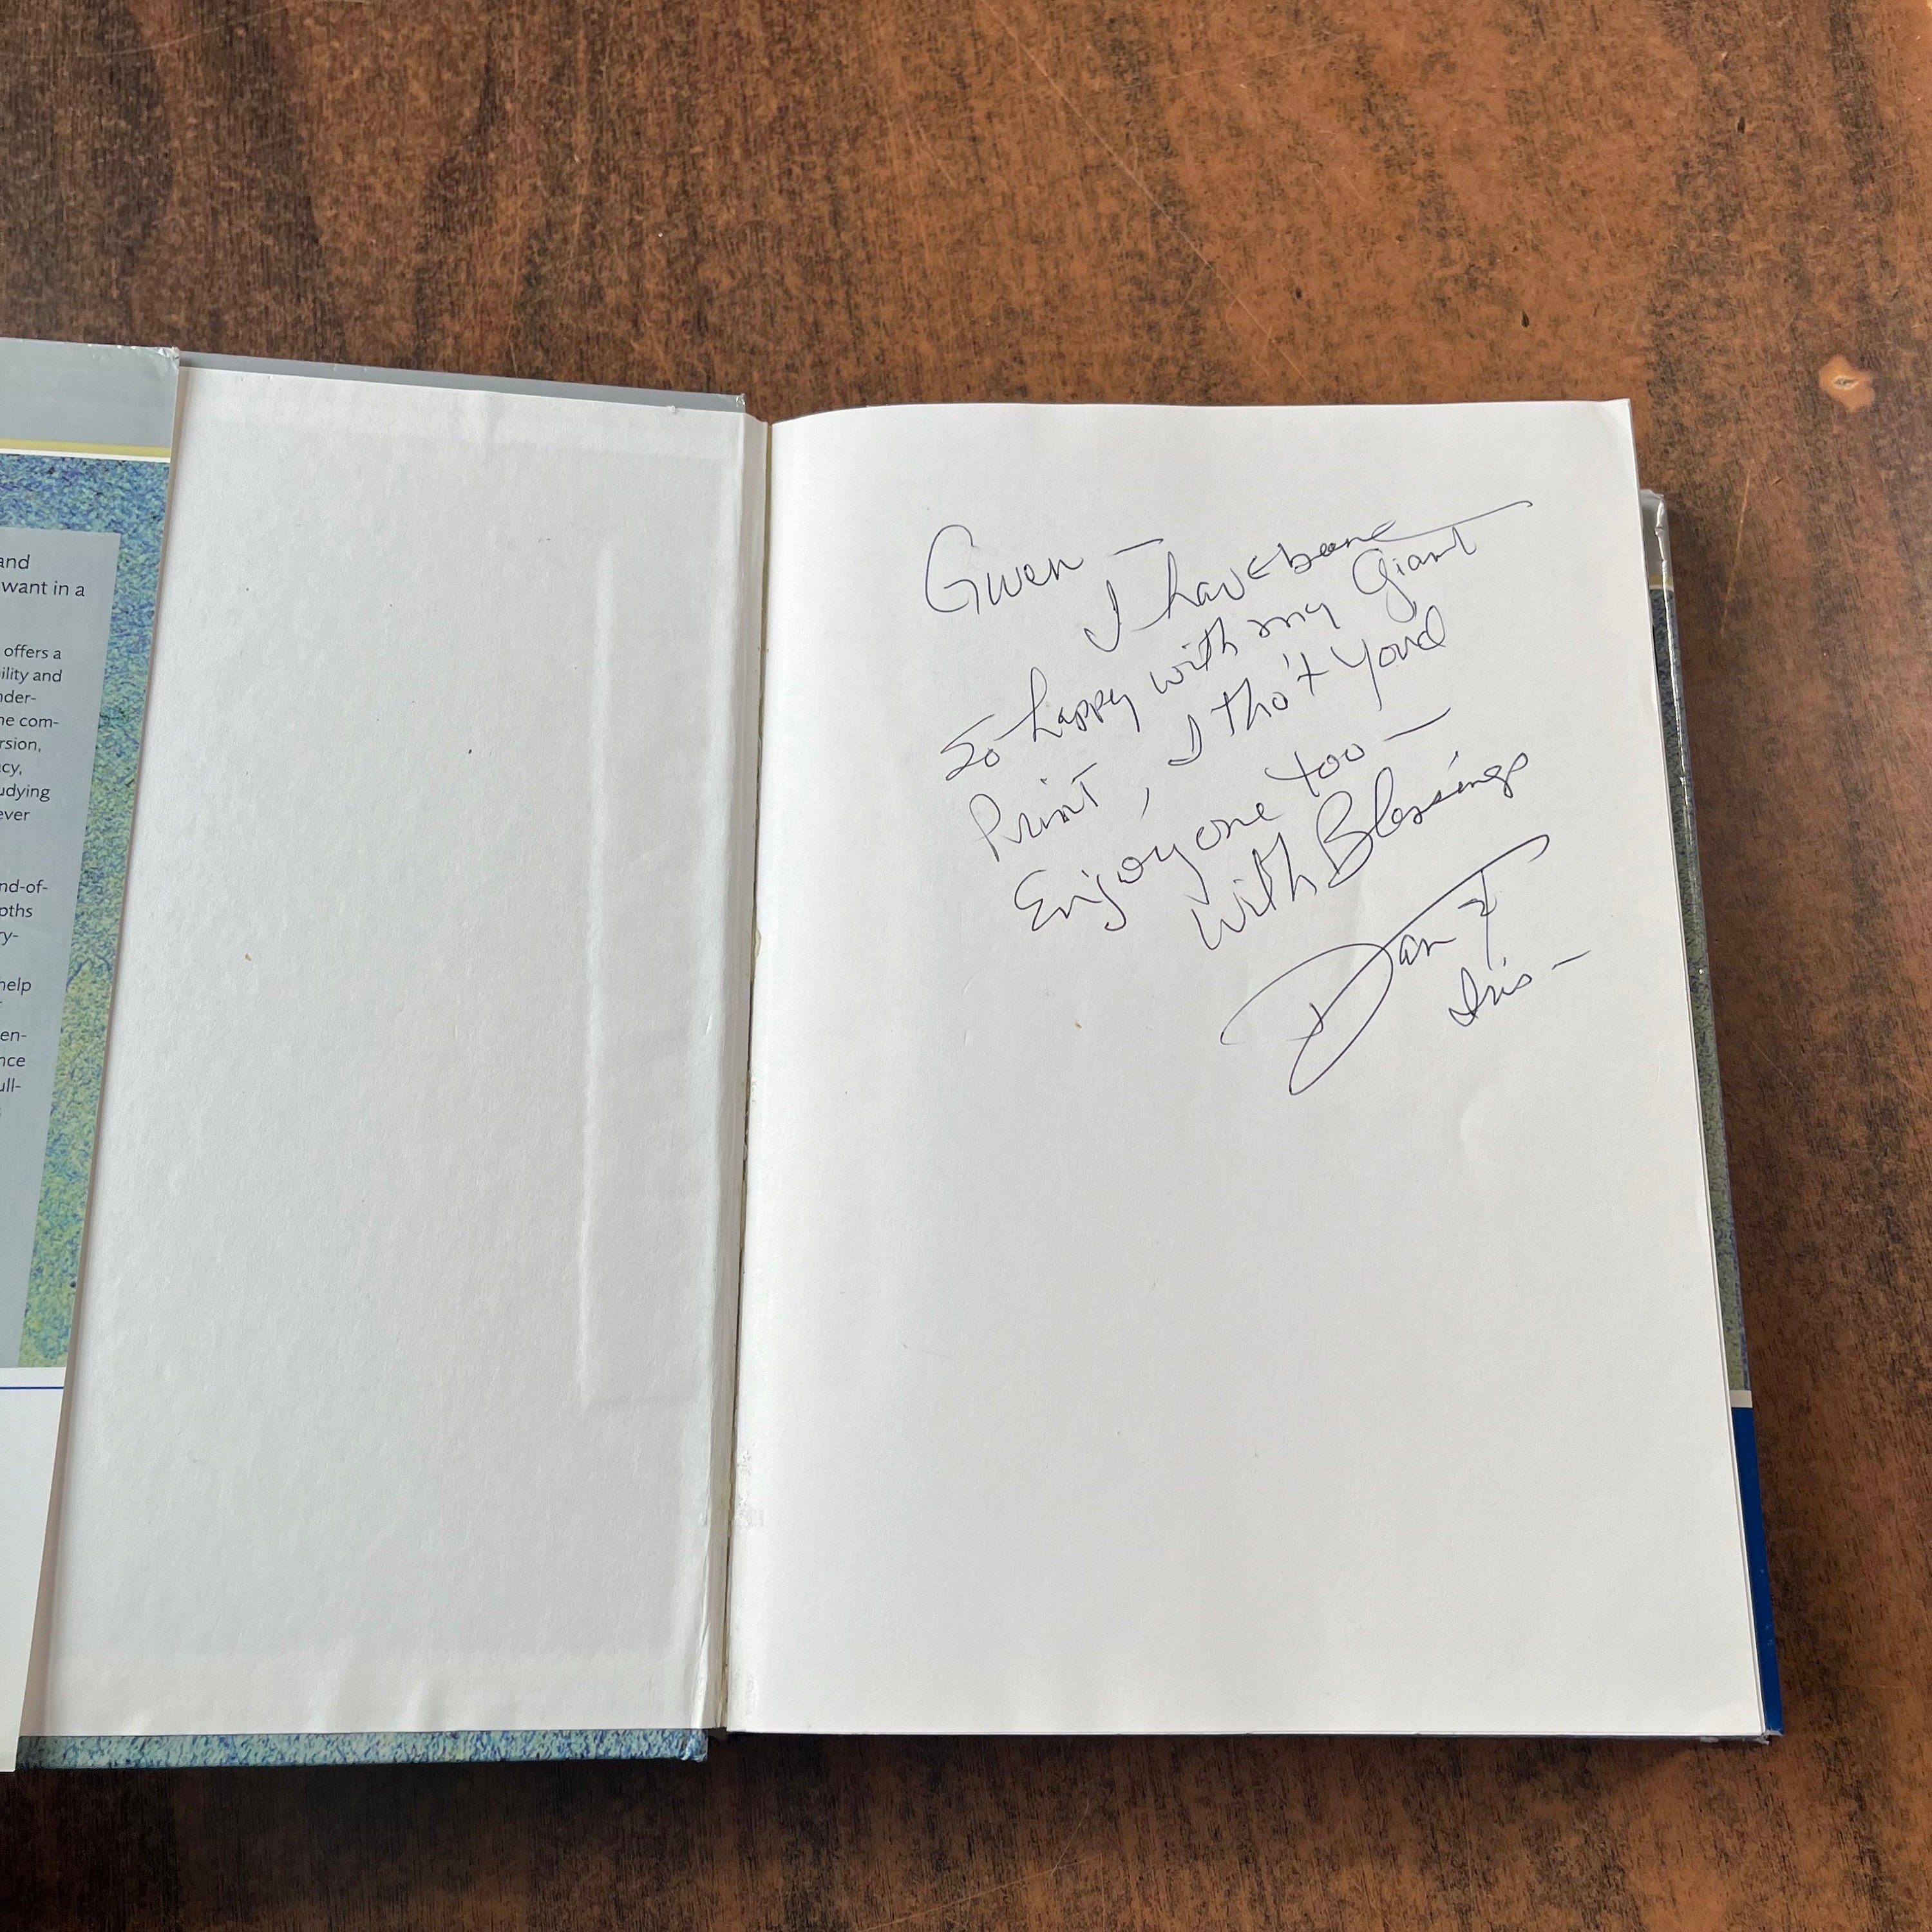 and
want in a
offers a
ility and
nder-
ne com-
rsion,
cy,
udying
ever
nd-of-
pths
ry-
help
en-
nce
ull-
Gwen —
I have been
so happy with my Giant
Print, I tho't you'd
Enjoy one too —
With Blessings
Dan &
Iris —